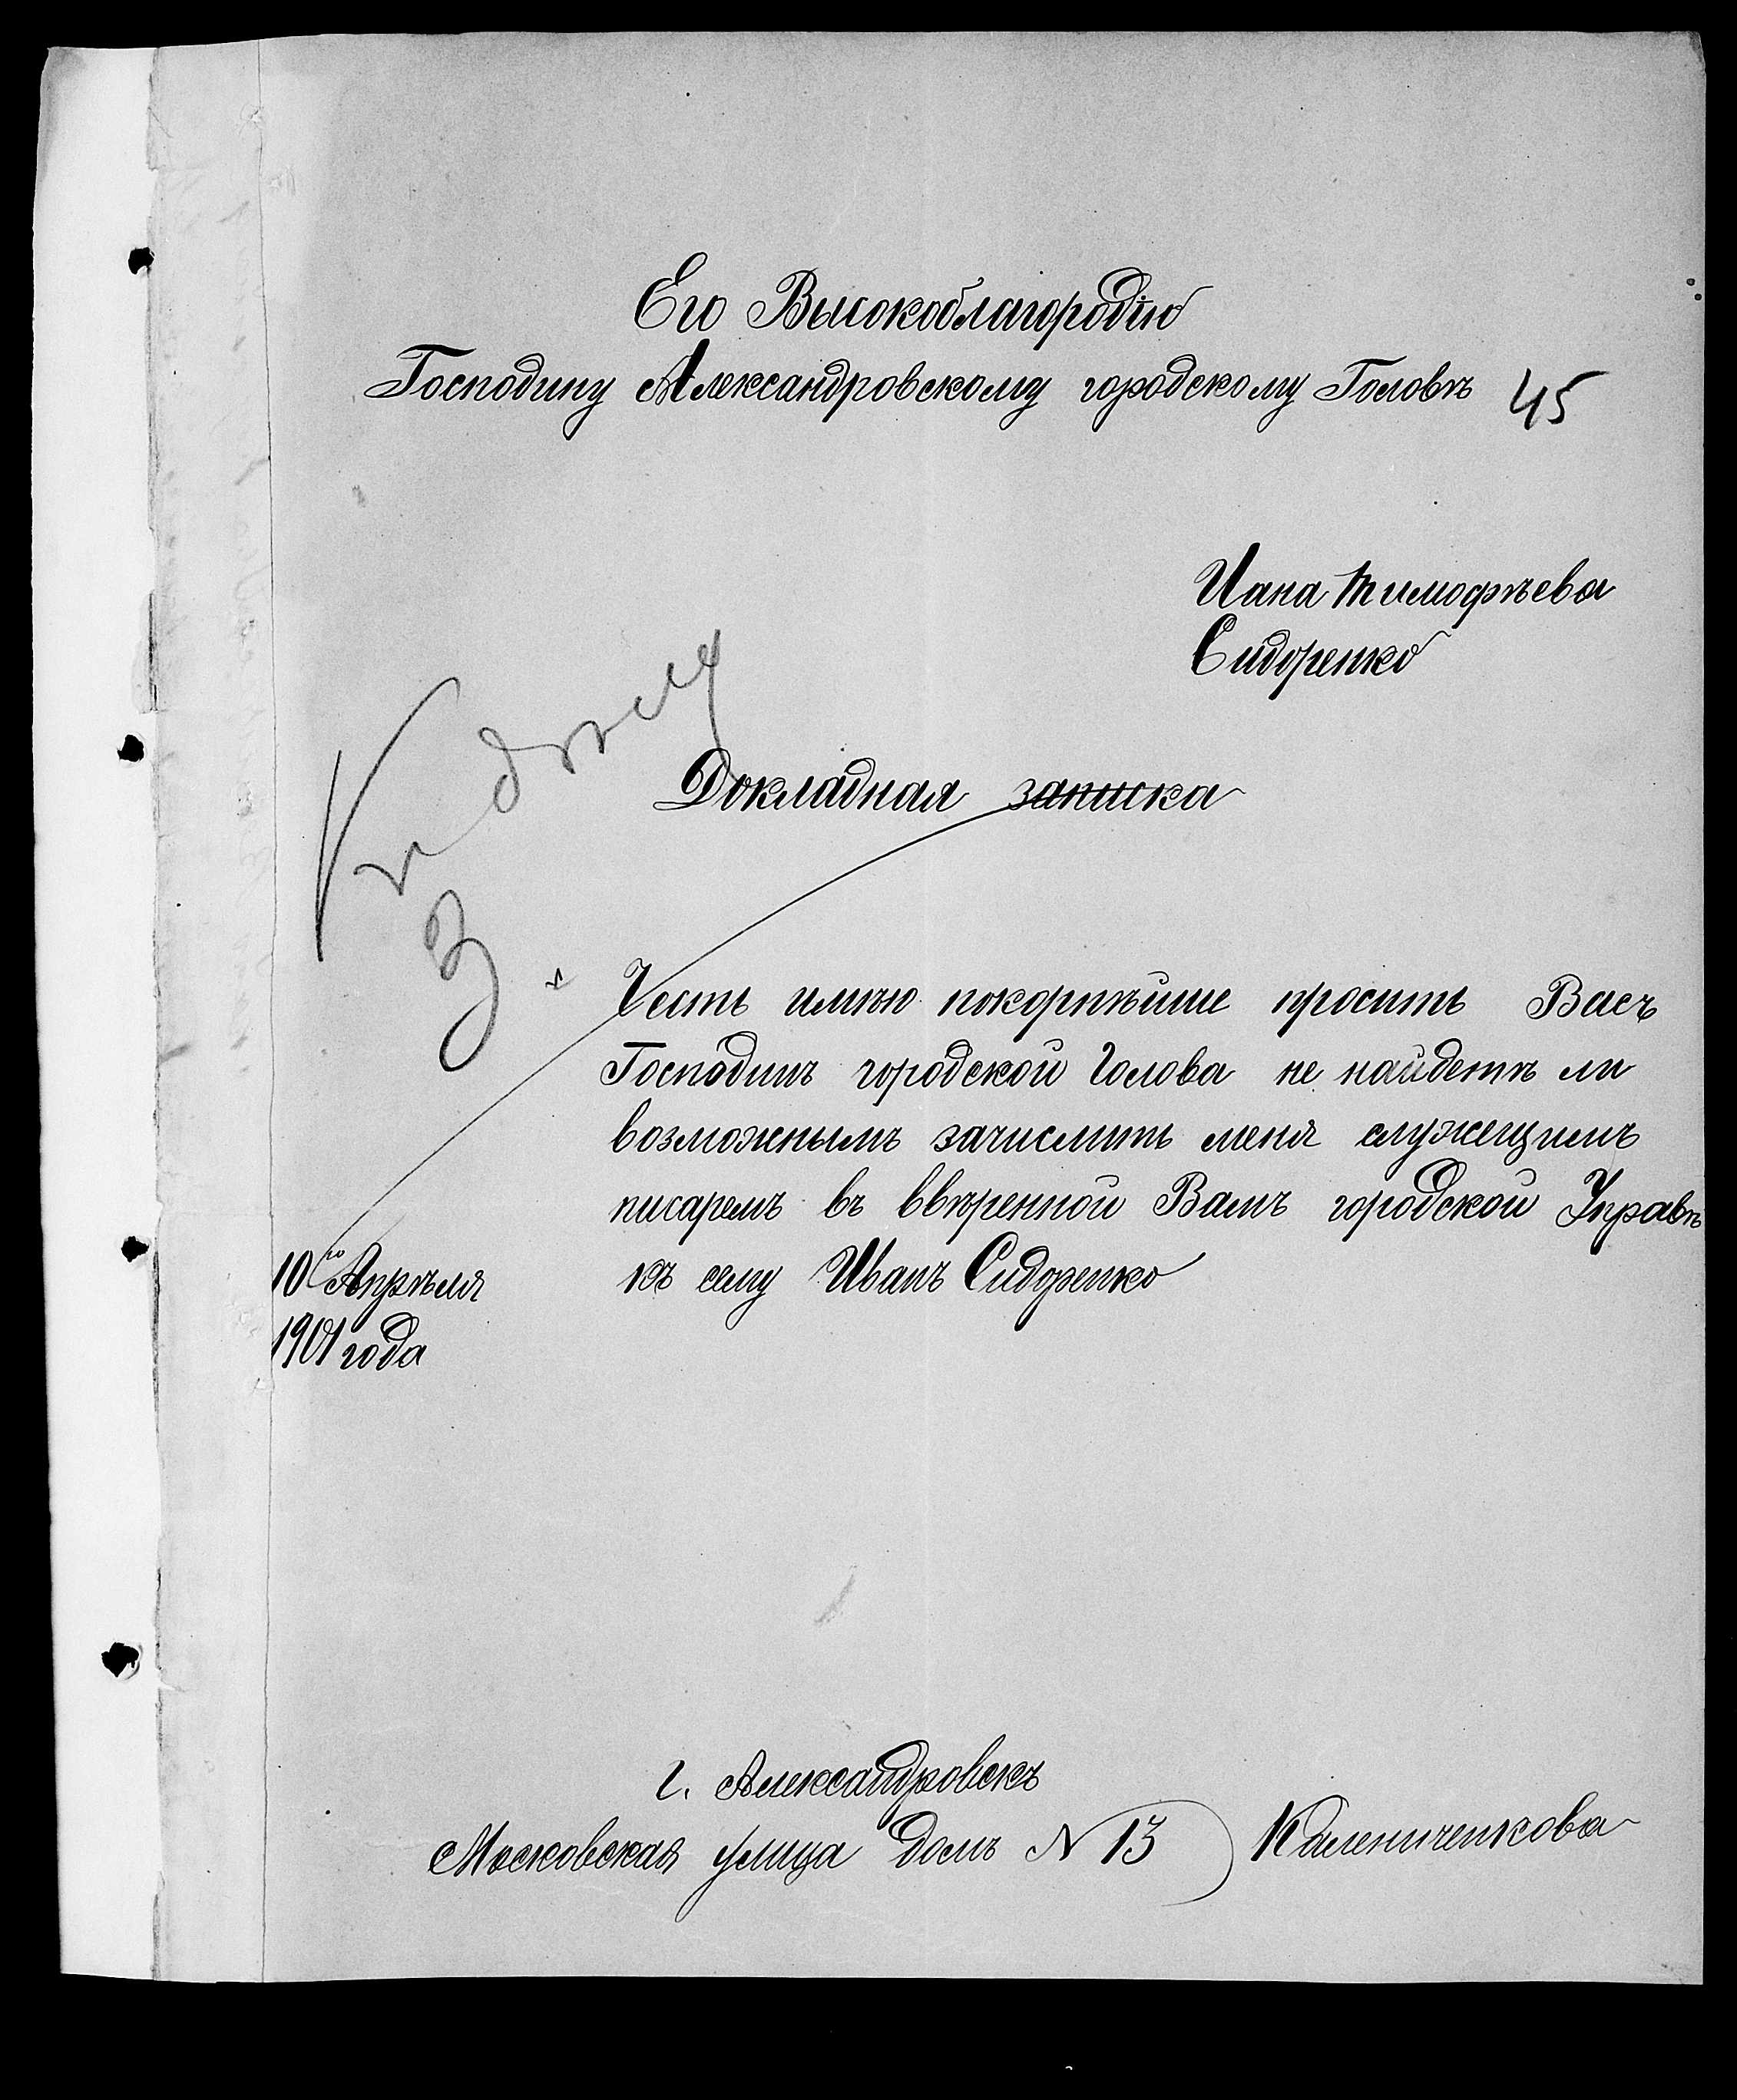 Его Высокоблагородію
Господину Александровскому городскому Головѣ 45
Иана Тимофѣева
Сидоренко
Къ дѣлу
Докладная записка
Честь имѣю покорнѣйше просить Васъ
Господинъ городской Голова не найдетѣ ли
возможнымъ зачислить меня служещимъ
писаремъ въ ввѣренной Вамъ городской Управѣ
къ сему Иванъ Сидоренко
10го Апрѣля
1901 года
г. Александровскъ
Московская улица домъ N 13 Калениченкова